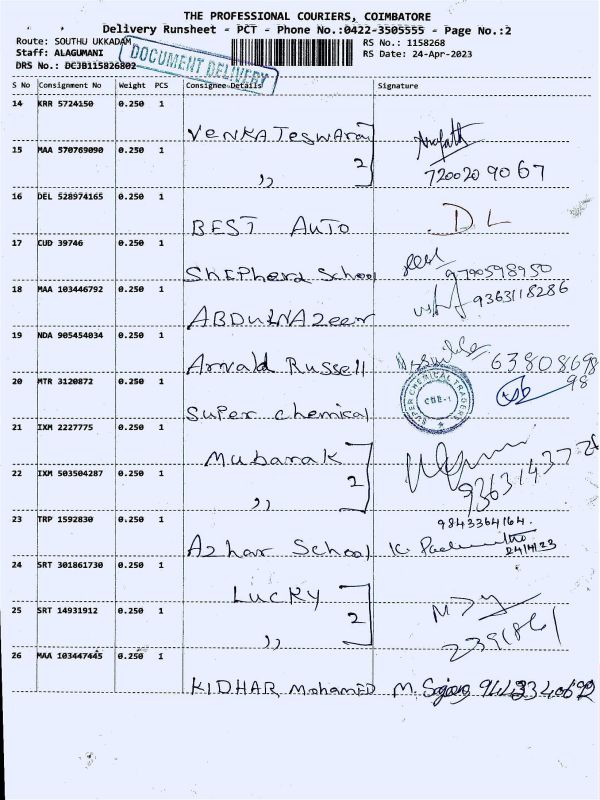 THE PROFESSIONAL COURIERS, COIMBATORE
Delivery Runsheet - PCT - Phone No.:0422-3505555 - Page No.:2
Route: SOUTHU UKKADAM
RS No.: 1158268
Staff: ALAGUMANI
RS Date: 24-Apr-2023
DRS No.: DCJB115826802
DOCUMENT DELIVERY
S No Consignment No Weight PCS Consignee Details Signature
14 KRR 5724150 0.250 1
VENKATeswaran
15 MAA 570769090 0.250 1 2
,, 7200209067
16 DEL 528974165 0.250 1
BEST AUTO DL
17 CUD 39746 0.250 1
Shepherd School 9790598950
18 MAA 103446792 0.250 1 9363118286
ABDULNAZeer
19 NDA 905454034 0.250 1
Arnald Russell 63808698
20 MTR 3120872 0.250 1 98
SUPER CHEMICAL TRADERS CBE-1
Super chemical
21 IXM 2227775 0.250 1
Mubarak
22 IXM 503504287 0.250 1 2
,,
23 TRP 1592830 0.250 1 9843364164.
Azhar School K. 24/4/23
24 SRT 301861730 0.250 1
Lucky
25 SRT 14931912 0.250 1 2
,,
26 MAA 103447445 0.250 1
KIDHAR Mohamed M.